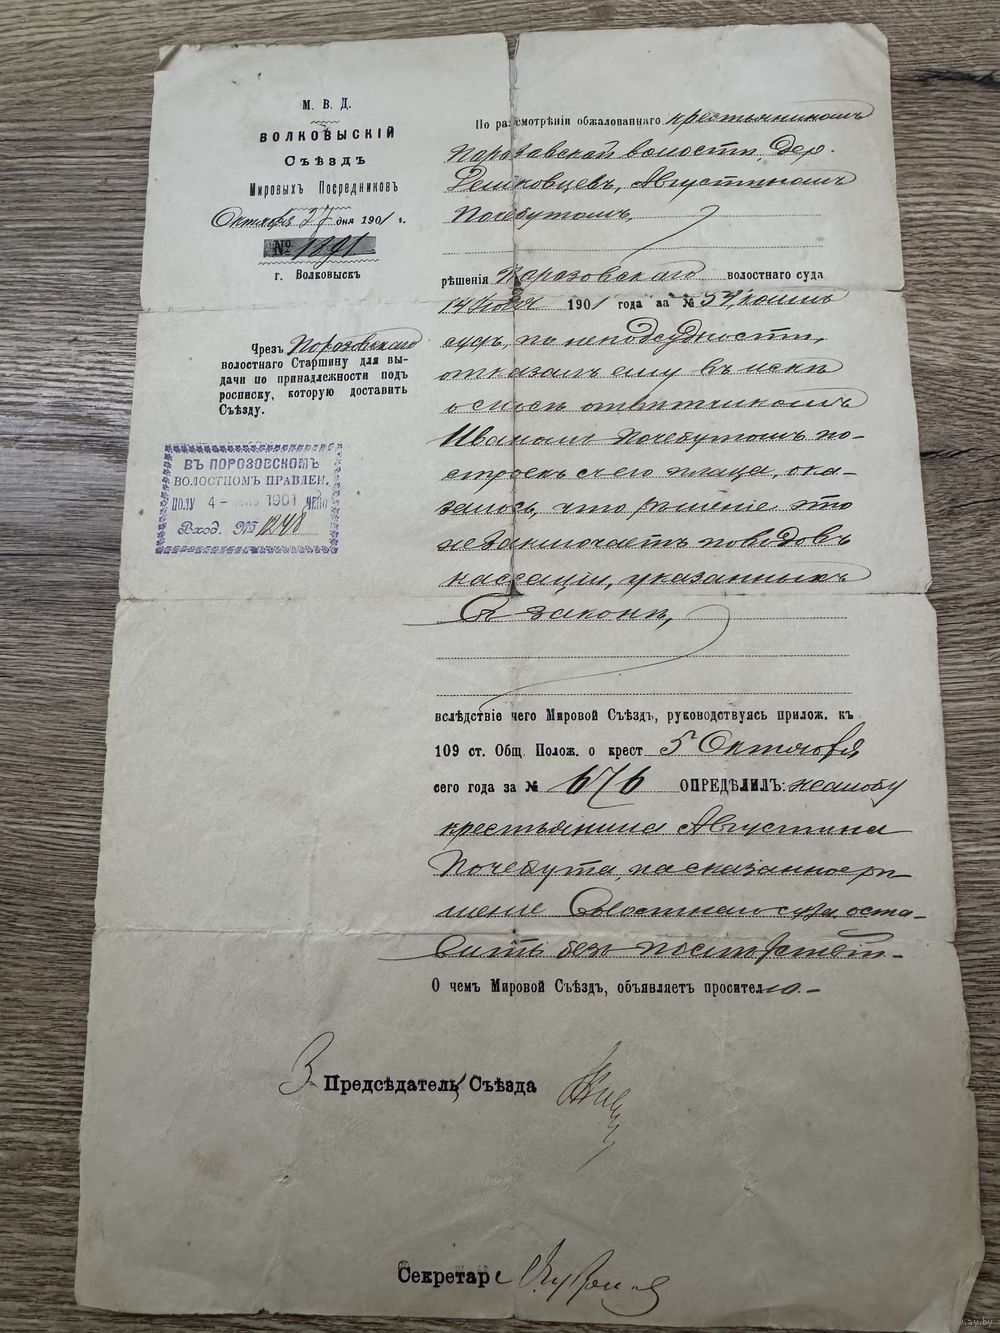 М. В. Д.
ВОЛКОВЫСКІЙ
Съѣздъ
Мировыхъ Посредниковъ
Октября 27 дня 1901 г.
№ 1891
г. Волковыскъ
Чрезъ Порозовскаго
волостнаго Старшину для вы-
дачи по принадлежности подъ
росписку, которую доставить
Съѣзду.
ВЪ ПОРОЗОВСКОМЪ
ВОЛОСТНОМЪ ПРАВЛЕН.
ПОЛУ 4 - 1901 ЧЕНО
Вход. № 1248
По разсмотрѣніи обжалованнаго крестьяниномъ
Порозовской волости дер.
Августиномъ
Почебутомъ,
рѣшенія Порозовскаго волостнаго суда
14 1901 года за № 54, коимъ
судъ, по неподсудности,
отказалъ ему въ искѣ
о сносѣ отвѣтчикомъ
Иваномъ Почебутомъ по-
строекъ съ его плаца, ока-
залось, что рѣшеніе это
не заключаетъ поводовъ
кассаціи, указанныхъ
въ законѣ,
вслѣдствіе чего Мировой Съѣздъ, руководствуясь прилож. къ
109 ст. Общ. Полож. о крест 5 Октября
сего года за № 676 ОПРЕДѢЛИЛЪ: жалобу
крестьянина Августина
Почебута на сказанное рѣ-
шеніе Волостнаго суда оста-
вить безъ послѣдствій.-
О чемъ Мировой Съѣздъ, объявляетъ просителю.-
З. Предсѣдателя Съѣзда
Секретарь
ay.by